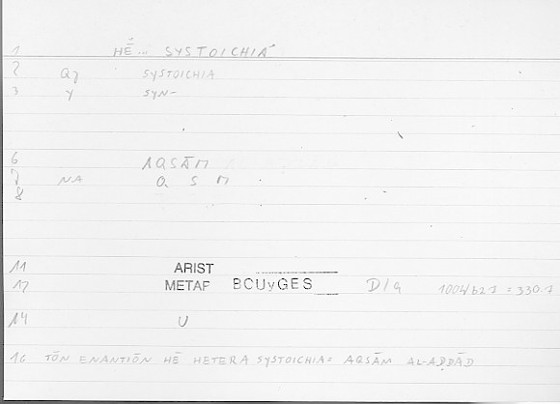 1 HĒ... SYSTOICHIA
2 Qγ SYSTOICHIA
3 γ SYN-
6 AQSĀM
7 NA Q S M
8
11 ARIST
12 METAF BCUyGES D/G 1004/b27 = 330.7
14 U
16 TŌN ENANTIŌN HĒ HETERA SYSTOICHIA= AQSĀM AL-AḌDĀD